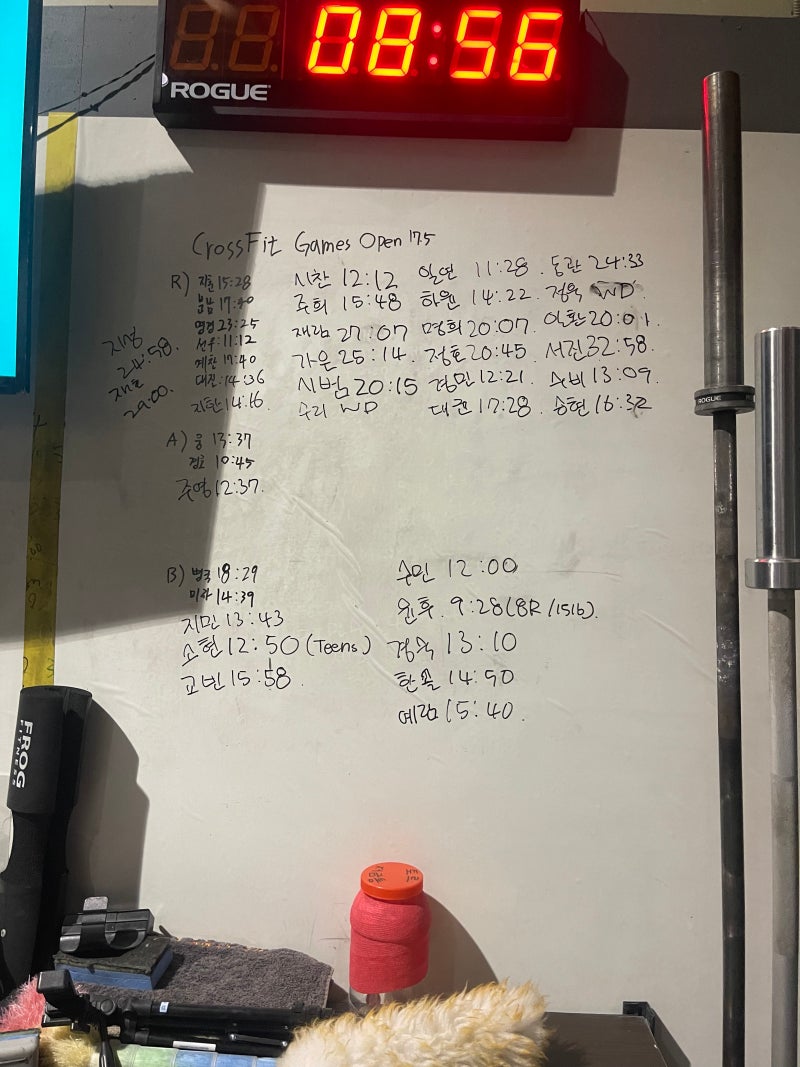 08:56
ROGUE
CrossFit Games Open 17.5
R) 지훈 15:28
17:40
명경 23:25
선우 11:12
계찬 17:40
대진 14:36
지환 14:16
지성
24:58
29:00
시찬 12:12 일연 11:28 동관 24:33
주희 15:48 하원 14:22 정욱 WD
재림 27:07 명희 20:07 20:01
가은 25:14 정호 20:45 서진 32:58
시범 20:15 경민 12:21 수비 13:09
수리 WD 대권 17:28 승현 16:32
A) 웅 13:37
10:45
주영 12:37
B) 병국 18:29
미라 14:39
지민 13:43
소현 12:50 (Teens)
교빈 15:58
수민 12:00
윤후 9:28 (8R/15lb)
경욱 13:10
한솔 14:50
예림 15:40
ROGUE
FROG
FITNESS